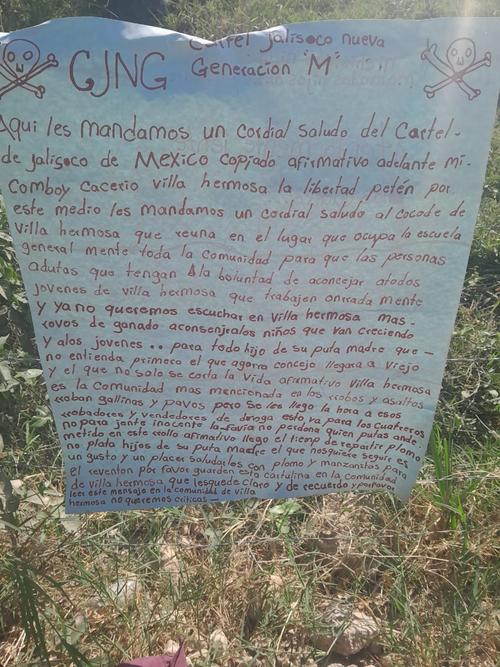 Cartel jalisoco nueva
CJNG Generacion "M"
Aqui les mandamos un cordial saludo del Cartel-
de jalisoco de MEXICO copiado afirmativo adelante mi-
comboy cacerio villa hermosa la libertad petén por
este medio les mandamos un cordial saludo al cocode de
villa hermosa que reuna en el lugar que ocupa la escuela
general mente toda la comunidad para que las personas
adutas que tengan Ala boluntad de aconcejar atodos
jovenes de villa hermosa que trabajen onrrada mente
y yano queremos escuchar en villa hermosa mas-
rrovos de ganado aconsonjralos niños que van creciendo
y alos jovenes .. para todo hijo de su puta madre que -
no entienda primero el que agarro concejo llegara a viejo
y el que no solo se corta la vida afirmativo villa hermosa
es la comunidad mas mencionada en los rrobos y asaltos
rroban gallinas y pavos pero se les llego la hora a esos
rrobadores y vendedores de droga esto va para los cuatreros
no para jante inocente la favia no perdona quien putas ande
metido en este rrollo afirmativo llego el tiempo de repartir plomo
no plata hijos de su puta madre el que nosquiere seguir es
un gusto y un placer saludarles con plomo y manzanas para
el reventon por favor guarden esta cartulina en la comunidad
de villa hermosa que lesquede claro y de recuerdo y porfavor
leer este mensajo en la comunidad de villa
hermosa no queremos criticas -